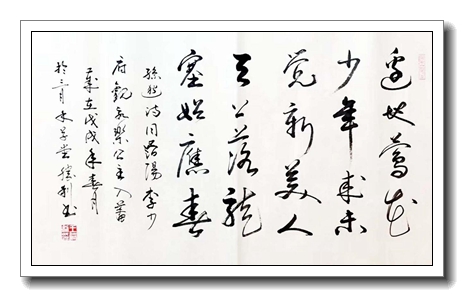 邊地鶯花
少年來未
覺新美人
天上落龍
塞始應春
孫逖詩同洛陽李少
府觀永樂公主入蕃
歲在戊戌年春月
於三月木子堂勝利書